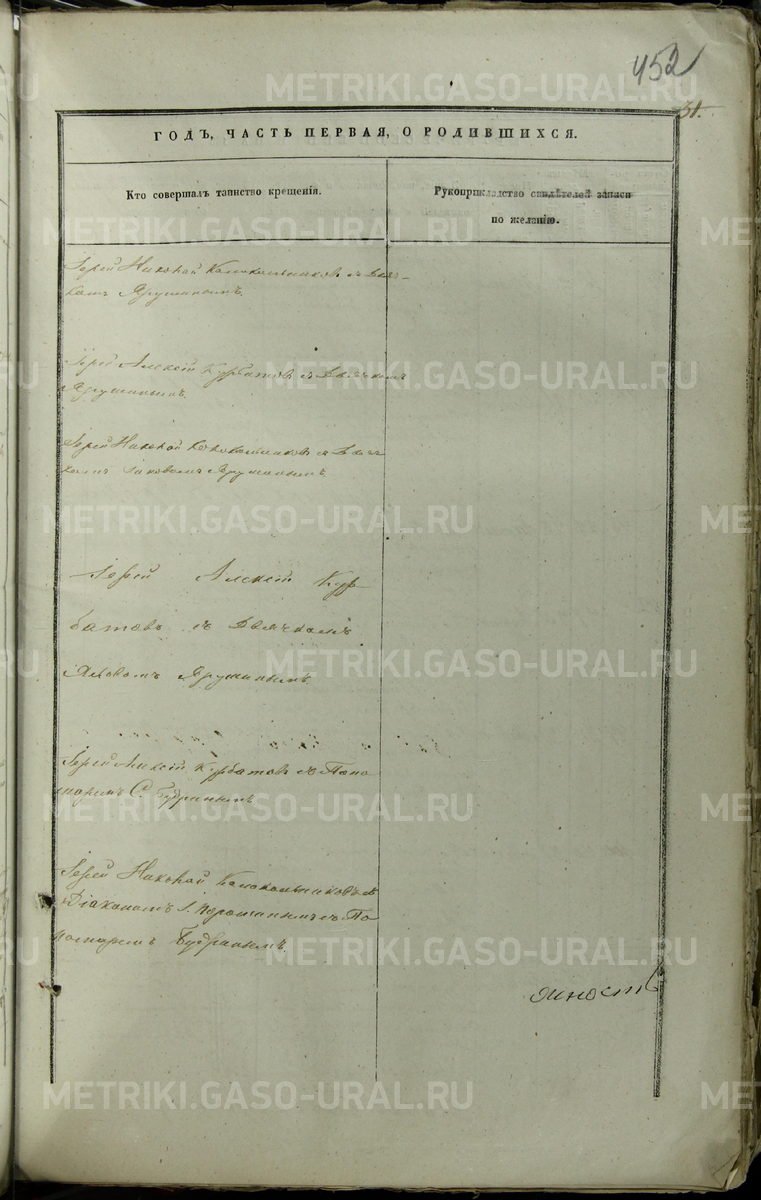 452
31.
ГОДЪ, ЧАСТЬ ПЕРВАЯ, О РОДИВШИХСЯ.
Кто совершалъ таинство крещенія.
Рукоприкладство свидѣтелей записи
по желанію.
Іерей Николай Колокольниковъ съ Дьяч-
комъ Ярушинымъ.
Іерей Алексій Курбатовъ съ Дьячкомъ
Ярушинымъ.
Іерей Николай Колокольниковъ съ Дьяч-
комъ Іаковомъ Ярушинымъ.
Іерей Алексій Кур-
батовъ съ Дьячкомъ
Яковомъ Ярушинымъ.
Іерей Алексій Курбатовъ съ Поно-
маремъ С. Будринымъ
Іерей Николай Колокольниковъ съ
Діакономъ І. Порошинымъ съ По-
номаремъ Будринымъ.
METRIKI.GASO-URAL.RU